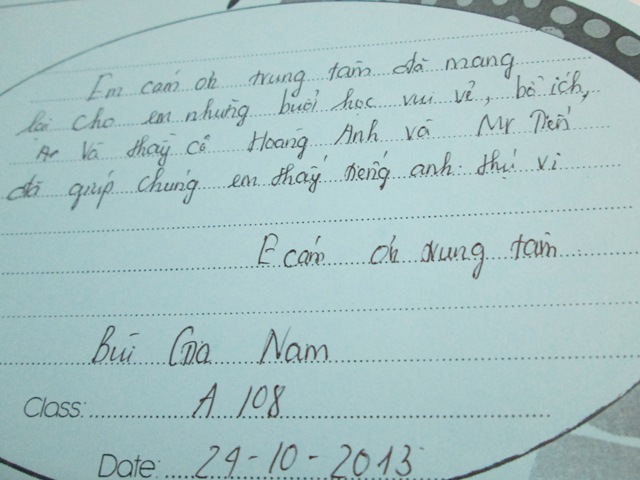 Em cám ơn trung tâm đã mang
lại cho em những buổi học vui vẻ, bổ ích,
Ar Và thầy cô Hoàng Anh và Mr Tiến
đã giúp chúng em thấy tiếng anh thú vị
E cám ơn trung tâm
Bùi Gia Nam
Class: A 108
Date: 24-10-2013